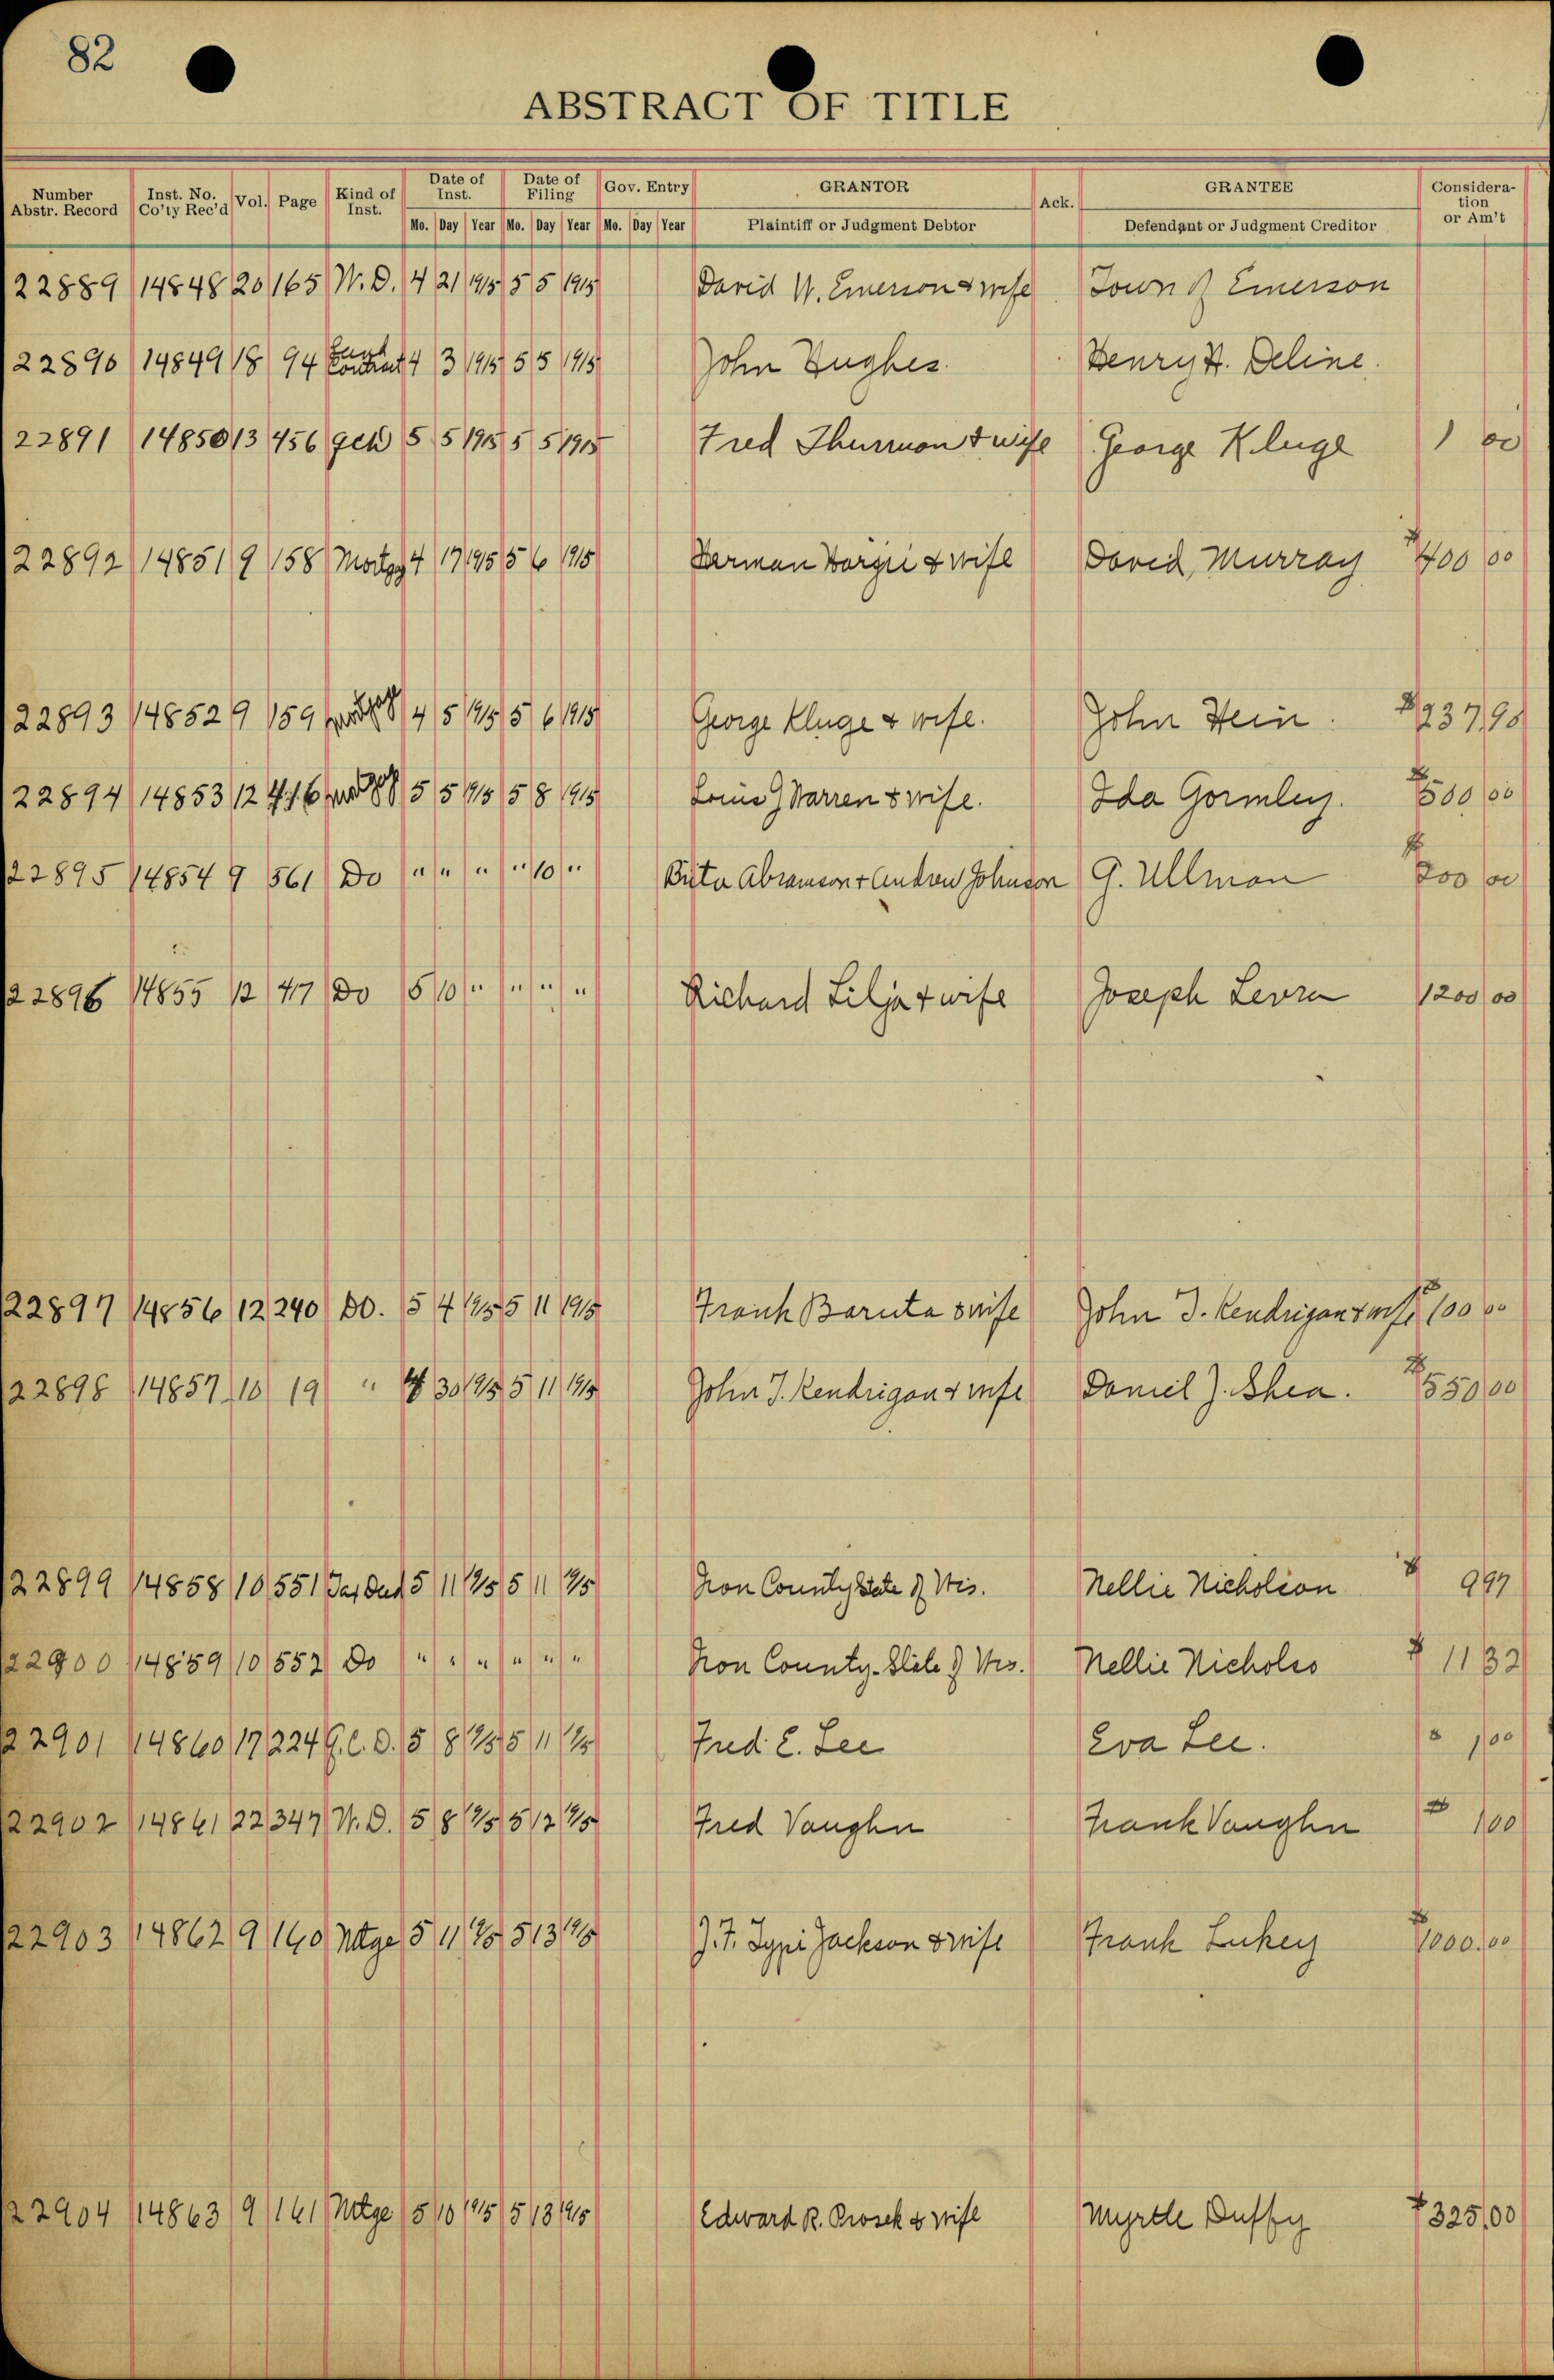 82
ABSTRACT OF TITLE
Number Abstr. Record Inst. No. Co'ty Rec'd Vol. Page Kind of Inst. Date of Inst. Date of Filing Gov. Entry GRANTOR Ack. GRANTEE Consideration or Am't
Mo. Day Year Mo. Day Year Mo. Day Year Plaintiff or Judgment Debtor Defendant or Judgment Creditor
22889 14848 20 165 W.D. 4 21 1915 5 5 1915 David W. Emerson & wife Town of Emerson
22890 14849 18 94 Land Contract 4 3 1915 5 5 1915 John Hughes Henry H. Deline.
22891 14850 13 456 QCD 5 5 1915 5 5 1915 Fred Thurmon & wife George Kluge 1 00
22892 14851 9 158 4 17 1915 5 6 1915 Herman & wife David Murray $400 00
22893 14852 9 159 mortgage 4 5 1915 5 6 1915 George Kluge & wife. John Hein. $237,98
22894 14853 12 416 5 5 1915 5 8 1915 Louis J Warren & wife. Ida Gormley. $500 00
22895 14854 9 561 Do " " " " 10 " Abramson & Andrew Johnson G. Ullman $200 00
22896 14855 12 417 Do 5 10 " " " " Richard Lilja & wife Joseph Levra 1200 00
22897 14856 12 240 DO. 5 4 1915 5 11 1915 Frank Baruta & wife John J. Kendrigan & wife $100 00
22898 14857 10 19 " 4 30 1915 5 11 1915 John J. Kendrigan & wife Daniel J. Shea. $550 00
22899 14858 10 551 Tax Deed 5 11 1915 5 11 1915 Iron County State of Wis. Nellie Nicholson $ 997
22900 14859 10 552 Do " " " " " " Iron County-State of Wis. Nellie $ 1132
22901 14860 17 224 Q.C.D. 5 8 1915 5 11 1915 Fred E. Lee Eva Lee. $ 1 00
22902 14861 22 347 W.D. 5 8 1915 5 12 1915 Fred Vaughn Frank Vaughn $ 1 00
22903 14862 9 160 Mtge 5 11 1915 5 13 1915 J. F. Jackson & wife Frank Lukey $1000.00
22904 14863 9 161 Mtge 5 10 1915 5 13 1915 Edward R. Prosek & wife Myrtle Duffy $325,00